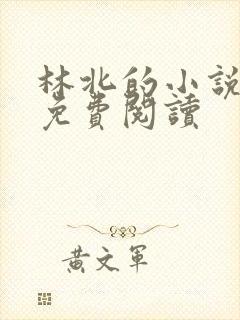 林北的小說
免費閱讀
黃文軍